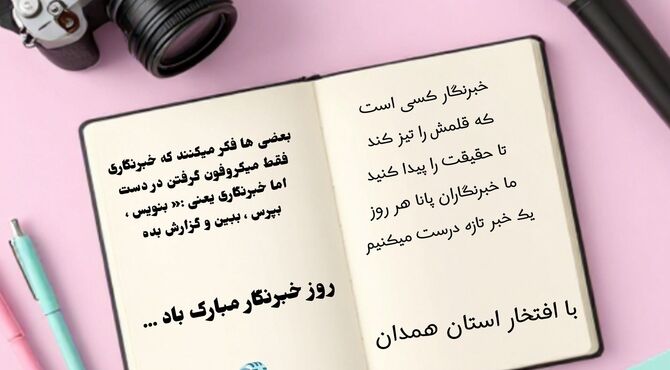 خبرنگار کسی است
که قلمش را تیز کند
تا حقیقت را پیدا کنید
ما خبرنگاران پانا هر روز
یک خبر تازه درست میکنیم
با افتخار استان همدان
بعضی ها فکر میکنند که خبرنگاری
فقط میکروفون گرفتن در دست
اما خبرنگاری یعنی :« بنویس ،
بپرس ، ببین و گزارش بده
روز خبرنگار مبارک باد ...